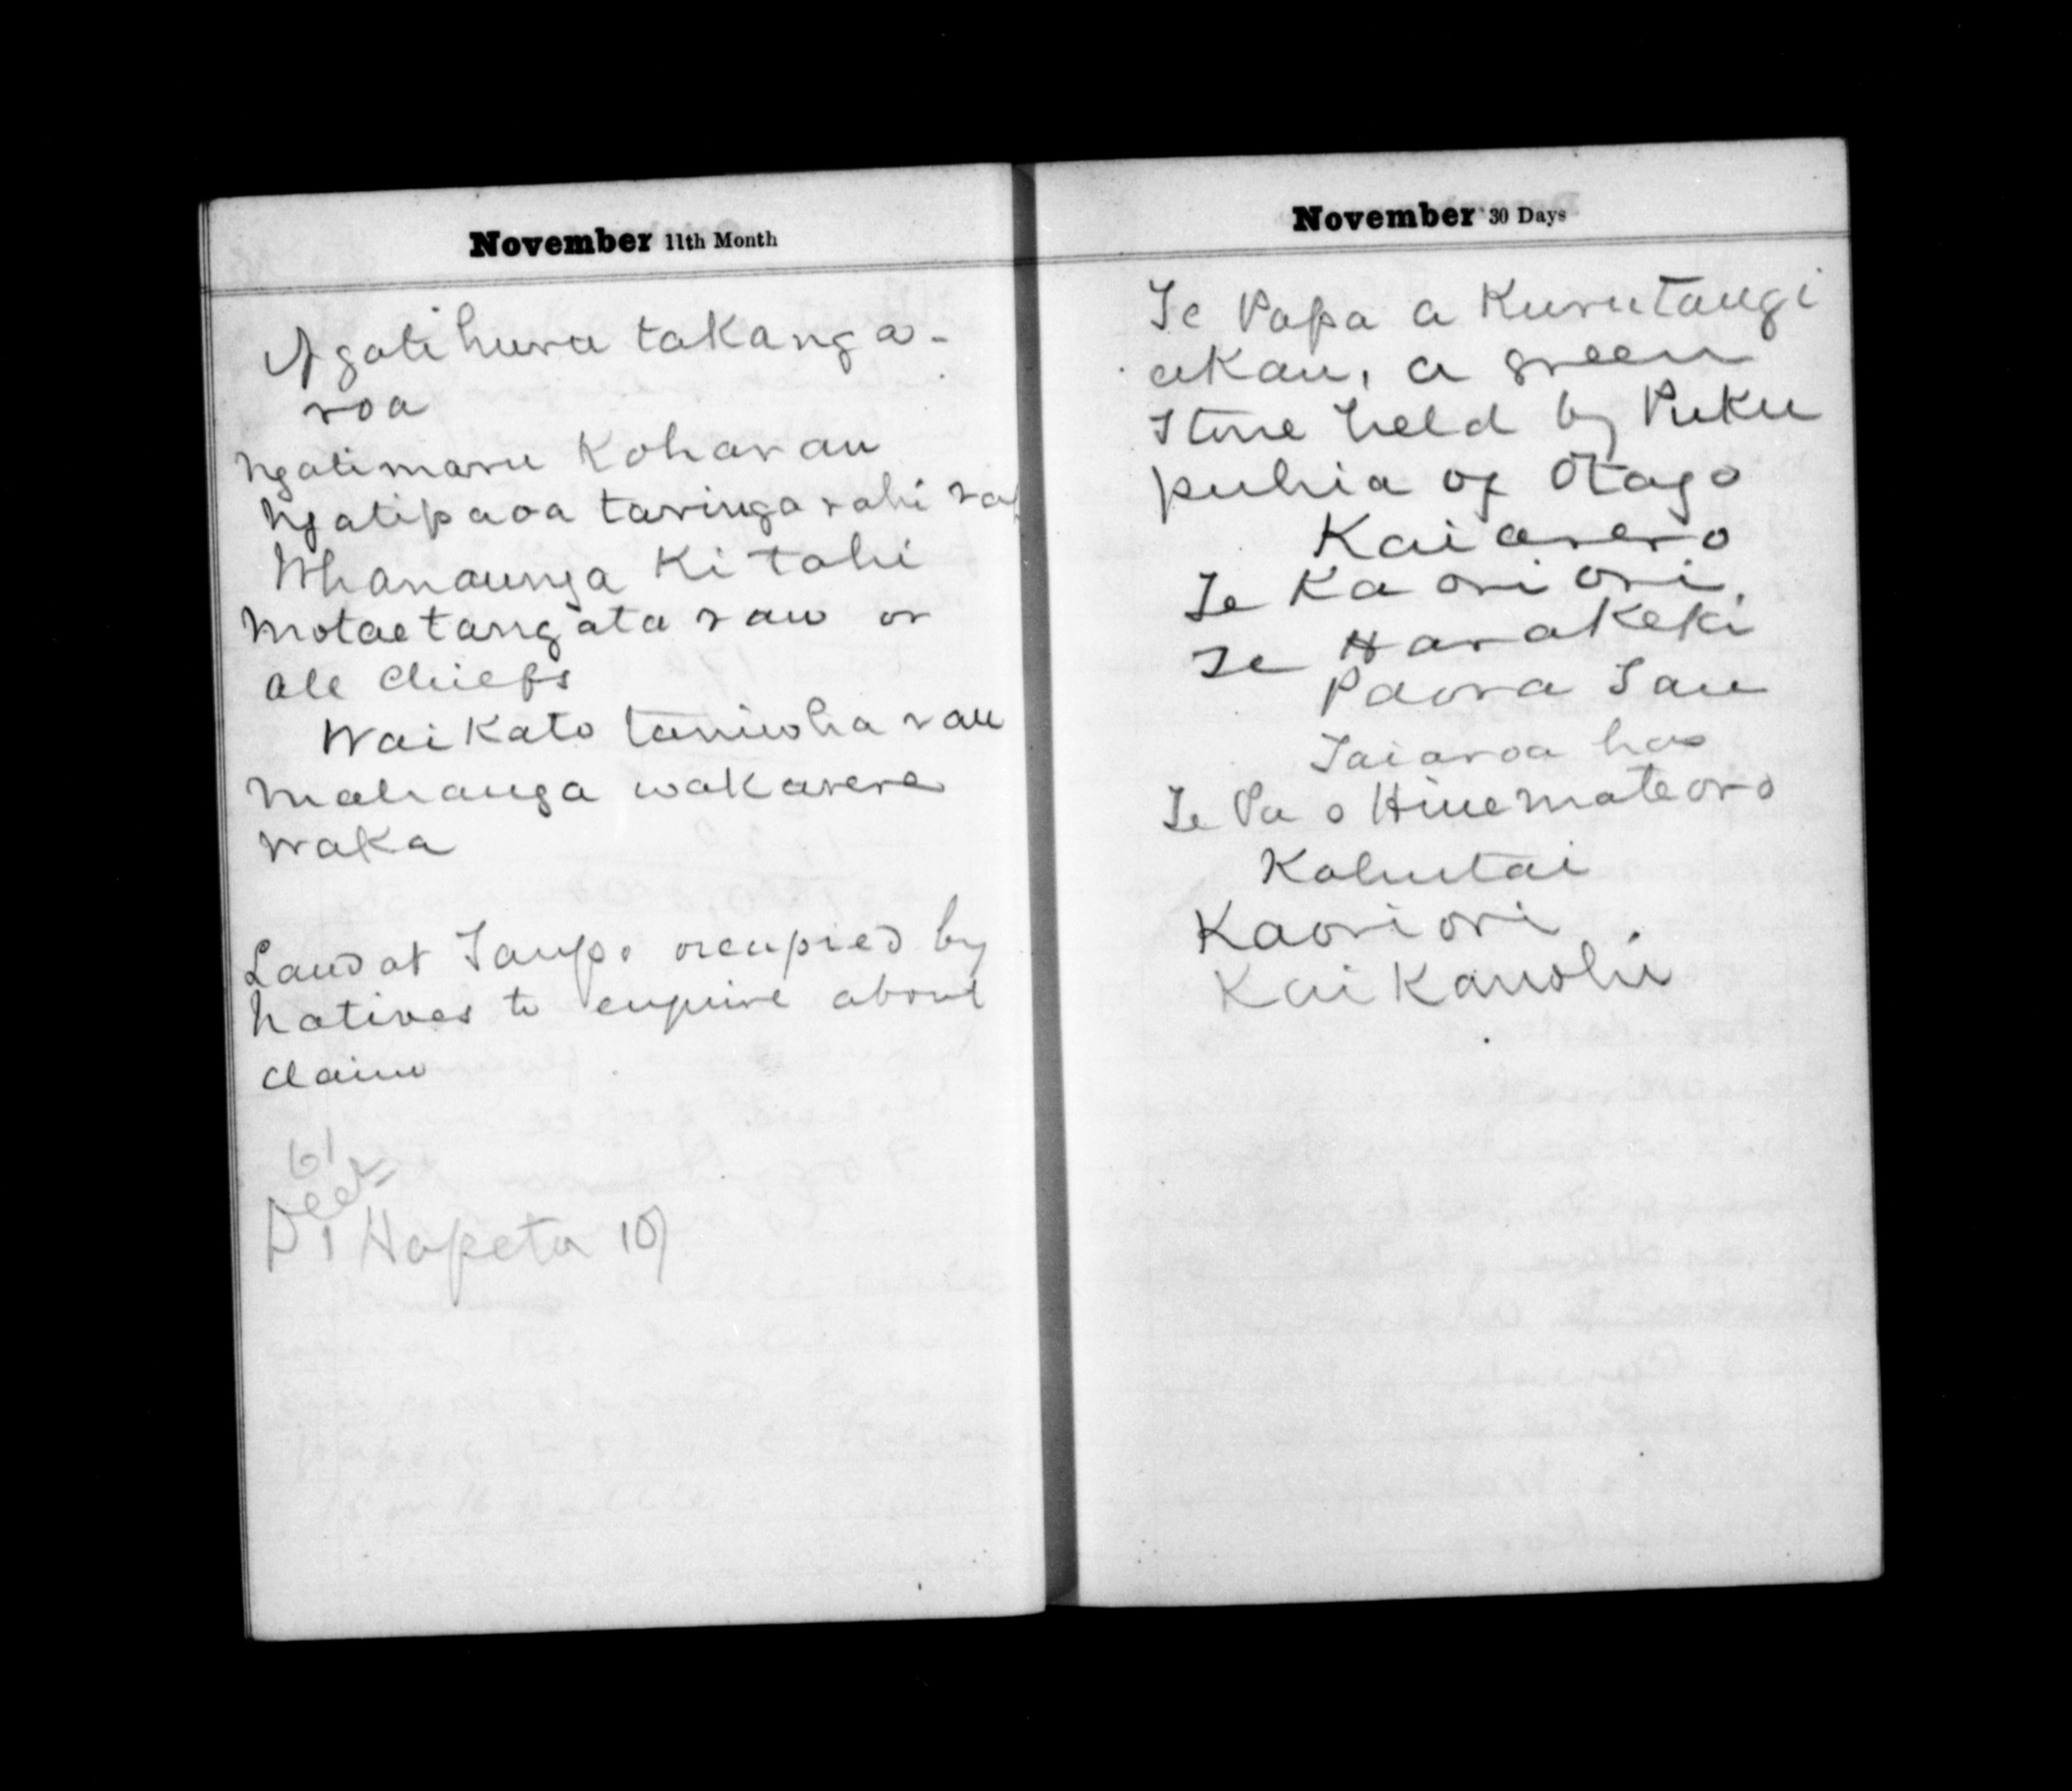 November 11th Month
Ngatihura takanga-
roa
Ngatimaru Koharau
Ngatipaoa taringa rahi rau
Whanaunga Ki tahi
Motaetangata rau or
all chiefs
Waikato taniwha rau
Mahanga wakarere
waka
Land at Taupo occupied by
natives to enquire about
claim
61
Deeds
Di Hapeta 10/
November 30 Days
Te Papa a Kurutangi
akau, a green
stone held by Puku
puhia of Otago
Kaiarero
Te Kaoriori,
Te Harakeki
Paora Tau
Taiaroa has
Te Pa o Hinemateoro
Kohutai
Kaoriori
Kai Kanohi